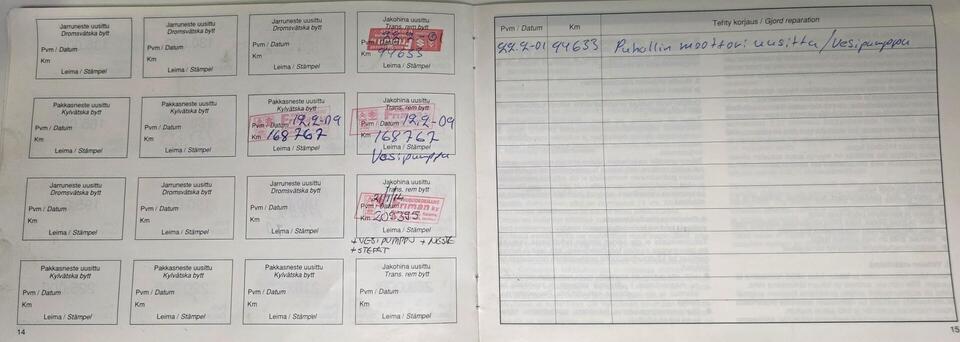 Jarruneste uusittu
Dromsvätska bytt
Pvm / Datum
Km
Leima / Stämpel
Jarruneste uusittu
Dromsvätska bytt
Pvm / Datum
Km
Leima / Stämpel
Jarruneste uusittu
Dromsvätska bytt
Pvm / Datum
Km
Leima / Stämpel
Jakohina uusittu
Trans. rem bytt
Pvm 22.2-01
Km 94633
Leima / Stämpel
Pakkasneste uusittu
Kylvätska bytt
Pvm / Datum
Km
Leima / Stämpel
Pakkasneste uusittu
Kylvätska bytt
Pvm / Datum
Km
Leima / Stämpel
Pakkasneste uusittu
Kylvätska bytt
Pvm / Datum 12.2-09
Km 168767
Leima / Stämpel
Jakohina uusittu
Trans. rem bytt
Pvm / Datum 12.2-09
Km 168767
Leima / Stämpel
Vesipumppu
Jarruneste uusittu
Dromsvätska bytt
Pvm / Datum
Km
Leima / Stämpel
Jarruneste uusittu
Dromsvätska bytt
Pvm / Datum
Km
Leima / Stämpel
Jarruneste uusittu
Dromsvätska bytt
Pvm / Datum
Km
Leima / Stämpel
Jakohina uusittu
Trans. rem bytt
Pvm
Km
Leima / Stämpel
+VESIPUMPPU +NESTE
Pakkasneste uusittu
Kylvätska bytt
Pvm / Datum
Km
Leima / Stämpel
Pakkasneste uusittu
Kylvätska bytt
Pvm / Datum
Km
Leima / Stämpel
Pakkasneste uusittu
Kylvätska bytt
Pvm / Datum
Km
Leima / Stämpel
Jakohina uusittu
Trans. rem bytt
Pvm / Datum
Km
Leima / Stämpel
14
Pvm / Datum Km Tehty korjaus / Gjord reparation
22.2-01 94633 Puhallin moottori uusittu / Vesipumppu
15